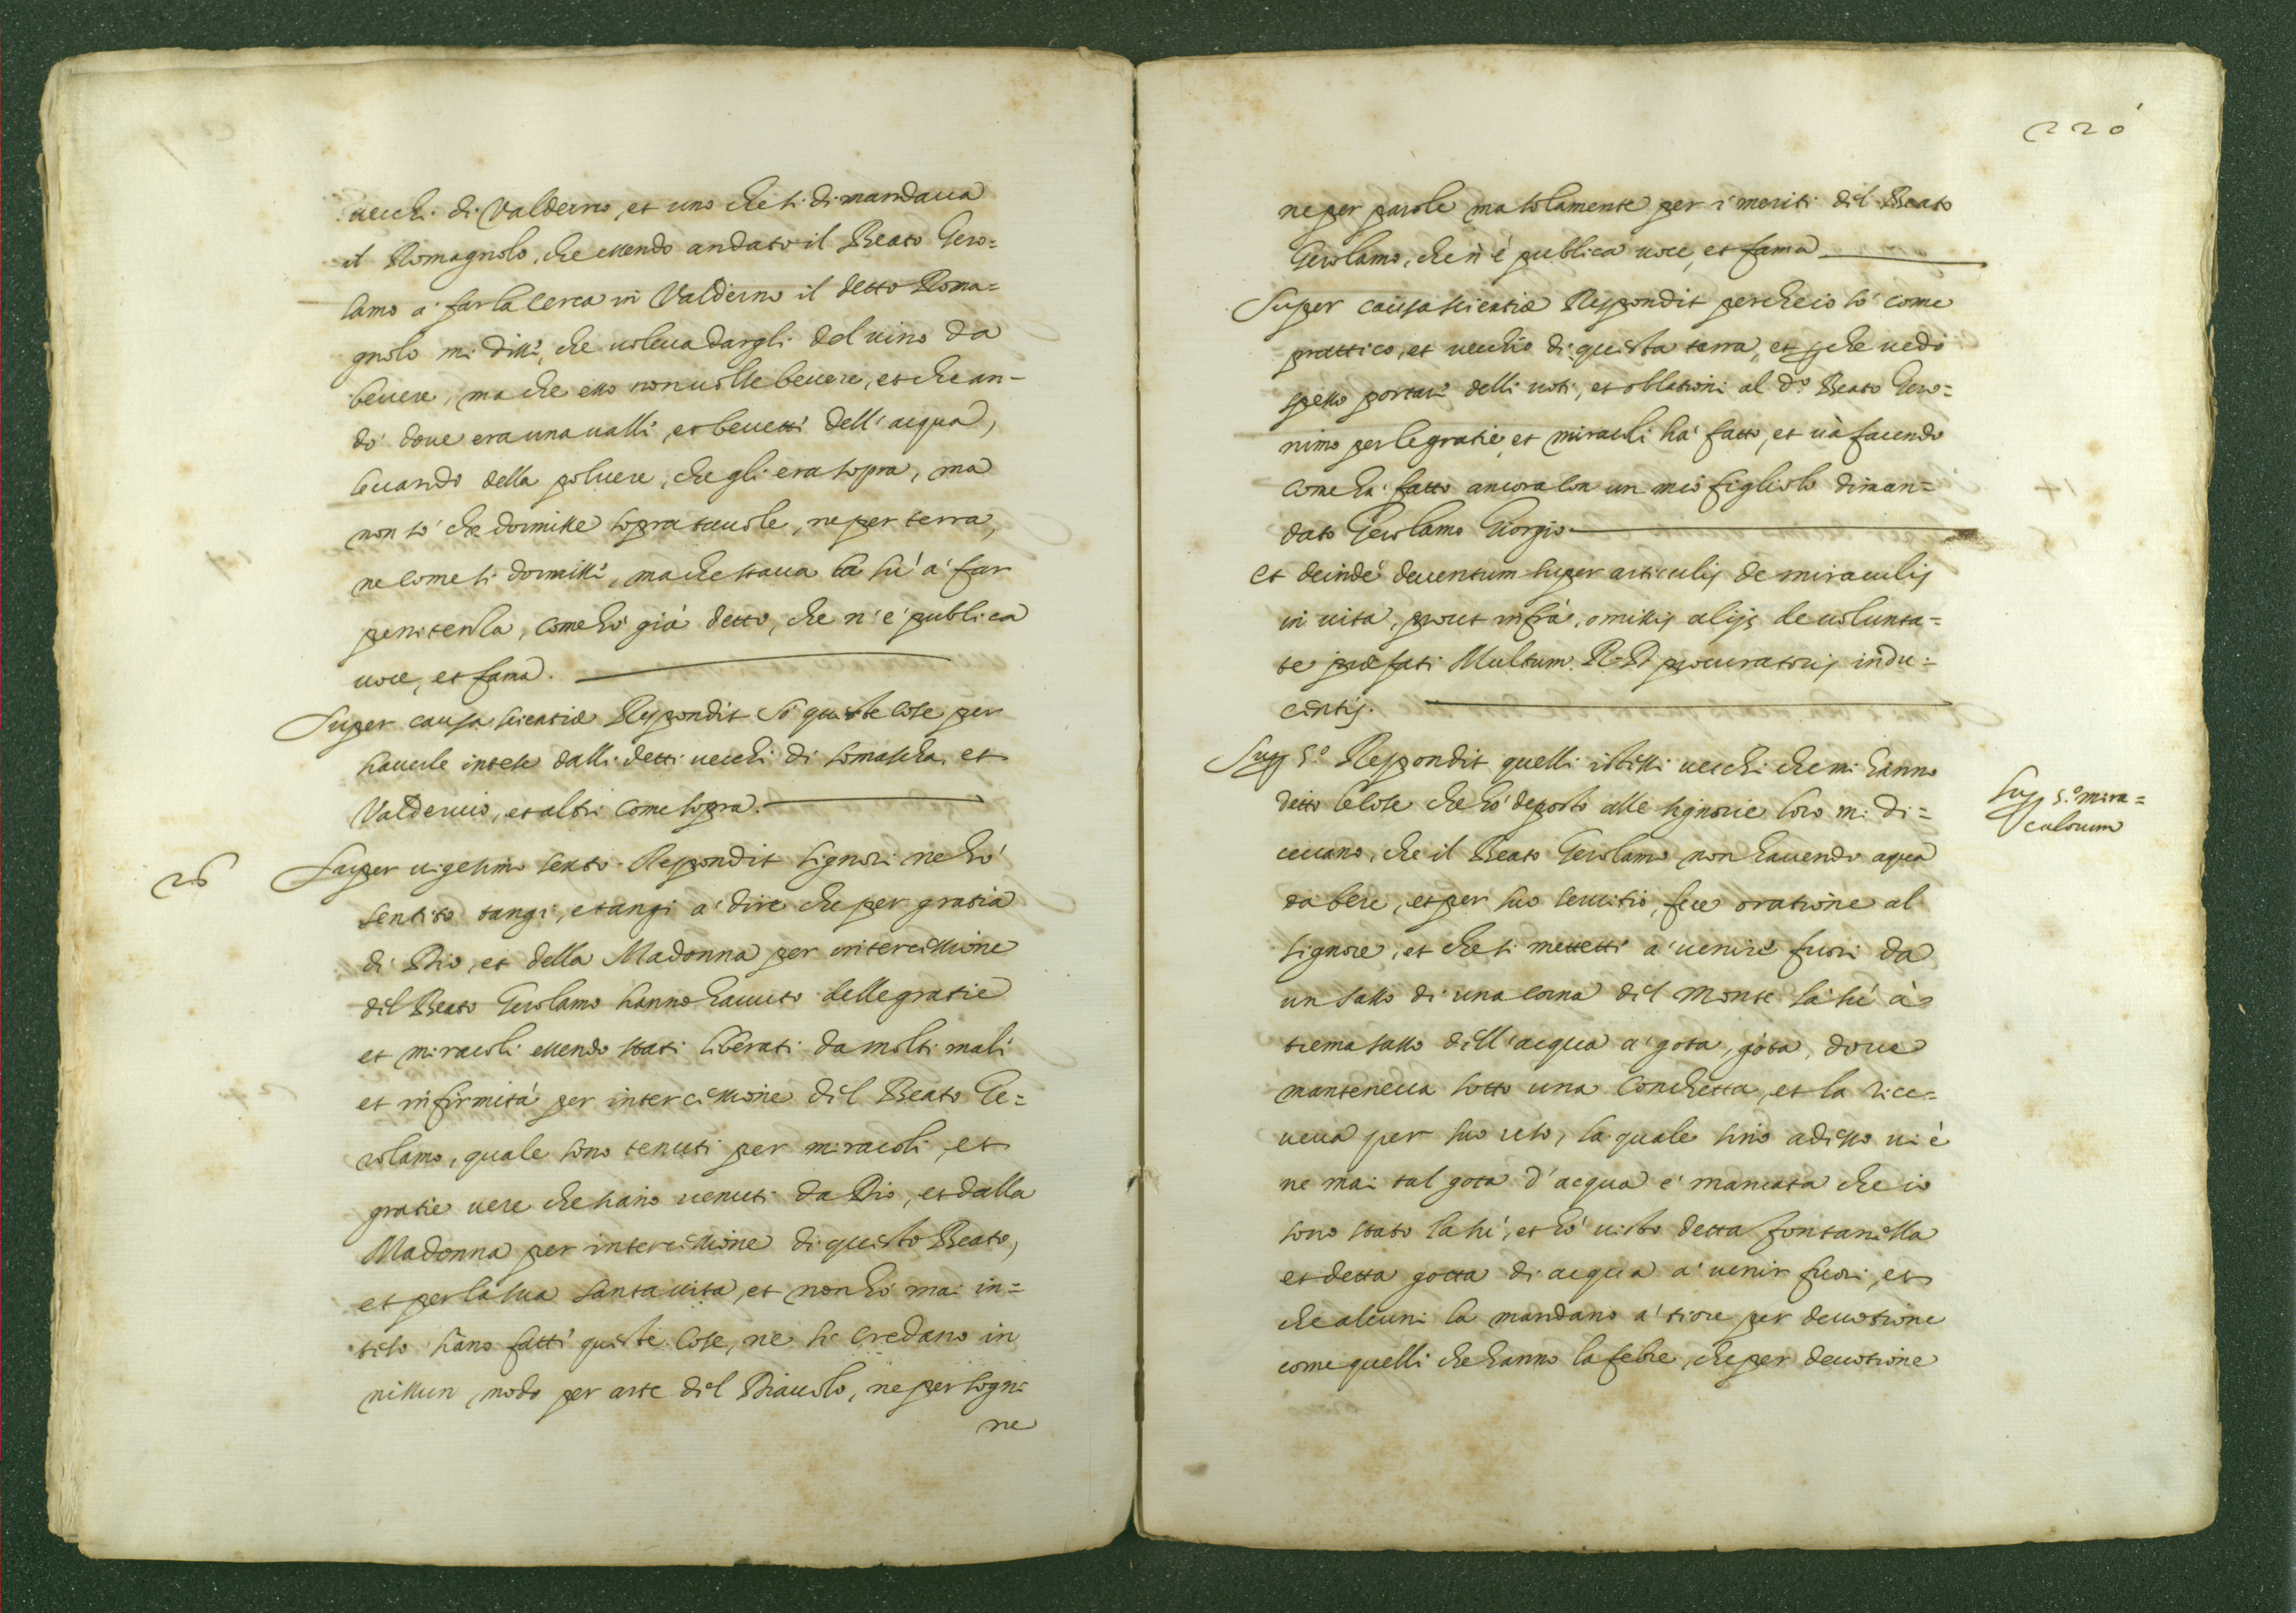 uecchi di Valderuo, et uno che si dimandaua
il Romagnolo, che essendo andato il Beato Gero=
lamo à far la cerca in Valderuo il detto Roma=
gnolo mi disse, che uoleua dargli del uino da
beuere, ma che esso non uolse beuere, et che an-
dò doue era una ualle, et beuette dell'acqua,
leuando della poluere, che gli era sopra, ma
non sò che dormisse sopra tauole, ne per terra,
ne come si dormisse, ma che staua la sù à far
penitenza, come hò già detto, che n'è publica
uoce, et fama.
Super causa scientiæ Respondit Sò queste cose per
hauerle intese dalli detti uecchi di Somascha, et
Valderuio, et altri come sopra.
26
Super uigesimo sexto Respondit Signori ne hò
sentito tangi, e tangi à dire che per gratia
di Dio, et della Madonna per intercessione
del Beato Gerolamo hanno hauuto delle gratie
et miracoli essendo stati liberati da molti mali
et infirmità per intercessione del Beato Ge=
rolamo, quale sono tenuti per miracoli, et
gratie uere che siano uenuti da Dio, et dalla
Madonna per intercessione di questo Beato,
et per la sua santa uita, et non hò mai in=
teso siano fatti queste cose, ne si credano in
nissun modo per arte del Diauolo, ne per sogni
ne
220
ne per parole ma solamente per i meriti del Beato
Gerolamo, che n'è publica uoce, et fama
Super causa scientiæ Respondit perche io sò come
prattico, et uecchio di questa terra, et perche uedo
spesso portare delli uoti, et oblationi al d.o Beato Gero=
nimo per le gratie, et miracoli hà fatto, et uà facendo
come hà fatto ancora con un mio figliolo diman=
dato Gerolamo Giorgio
Et deinde deuentum super articulis de miraculis
in uita, prout infrà, omissis alijs de uolunta=
te præfati Multum R. D. procuratoris indu=
centis.
Sup. 5.o Respondit quelli istessi uecchi che mi hanno
detto le cose che hò deposto alle signorie loro mi di=
ceuano, che il Beato Gerolamo non hauendo aqua
da bere, et per suo seruitio, fece oratione al
Signore, et che si mettette à uenire fuori da
un sasso di una corna del monte la sù à
trema sasso dell'acqua à gota, gota, doue
manteneua sotto una conchetta, et la rice=
ueua per suo uso, la quale sino adesso ui è
ne mai tal gota d'acqua è mancata che io
sono stato la sù, et hò uisto detta fontanella
et detta gotta di acqua à uenir fuori, et
che alcuni la mandano à tiore per deuotione
come quelli che hanno la febre, che per deuotione
Sup. 5.o mira=
culorum